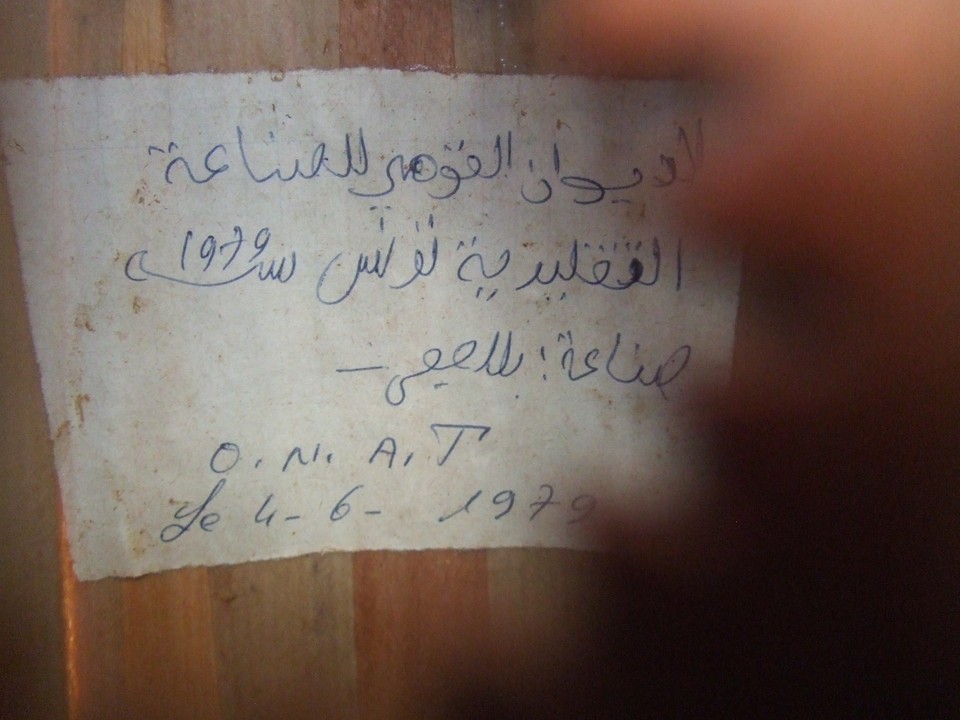 الديوان القومي للصناعة
التقليدية تونس سنة 1979
صناعة : بللصفي –
O. N. A. T
Le 4 - 6 - 1979